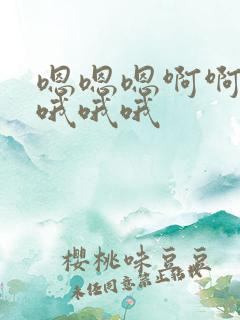 嗯嗯嗯啊啊
哦哦哦
樱桃味豆豆
未经同意禁止转载